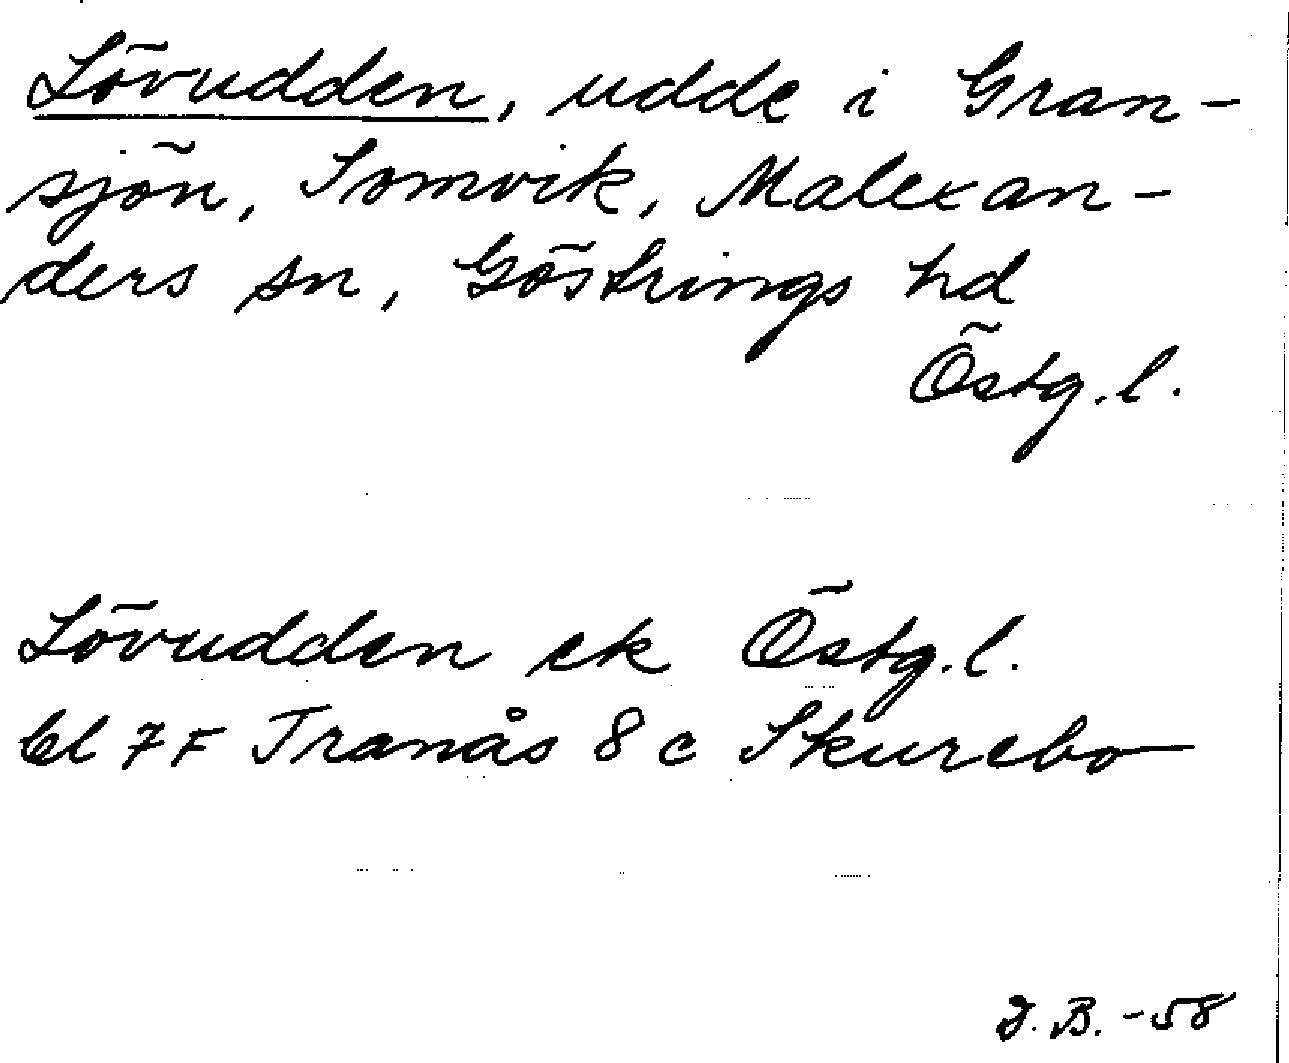 Lövudden, udde i Gran-
sjön, Somvik, Malexan-
ders sn, Göstrings hd
Östg.l.
Lövudden ek Östg.l.
bl 7F Tranås 8c Skurebo
J.B. -58